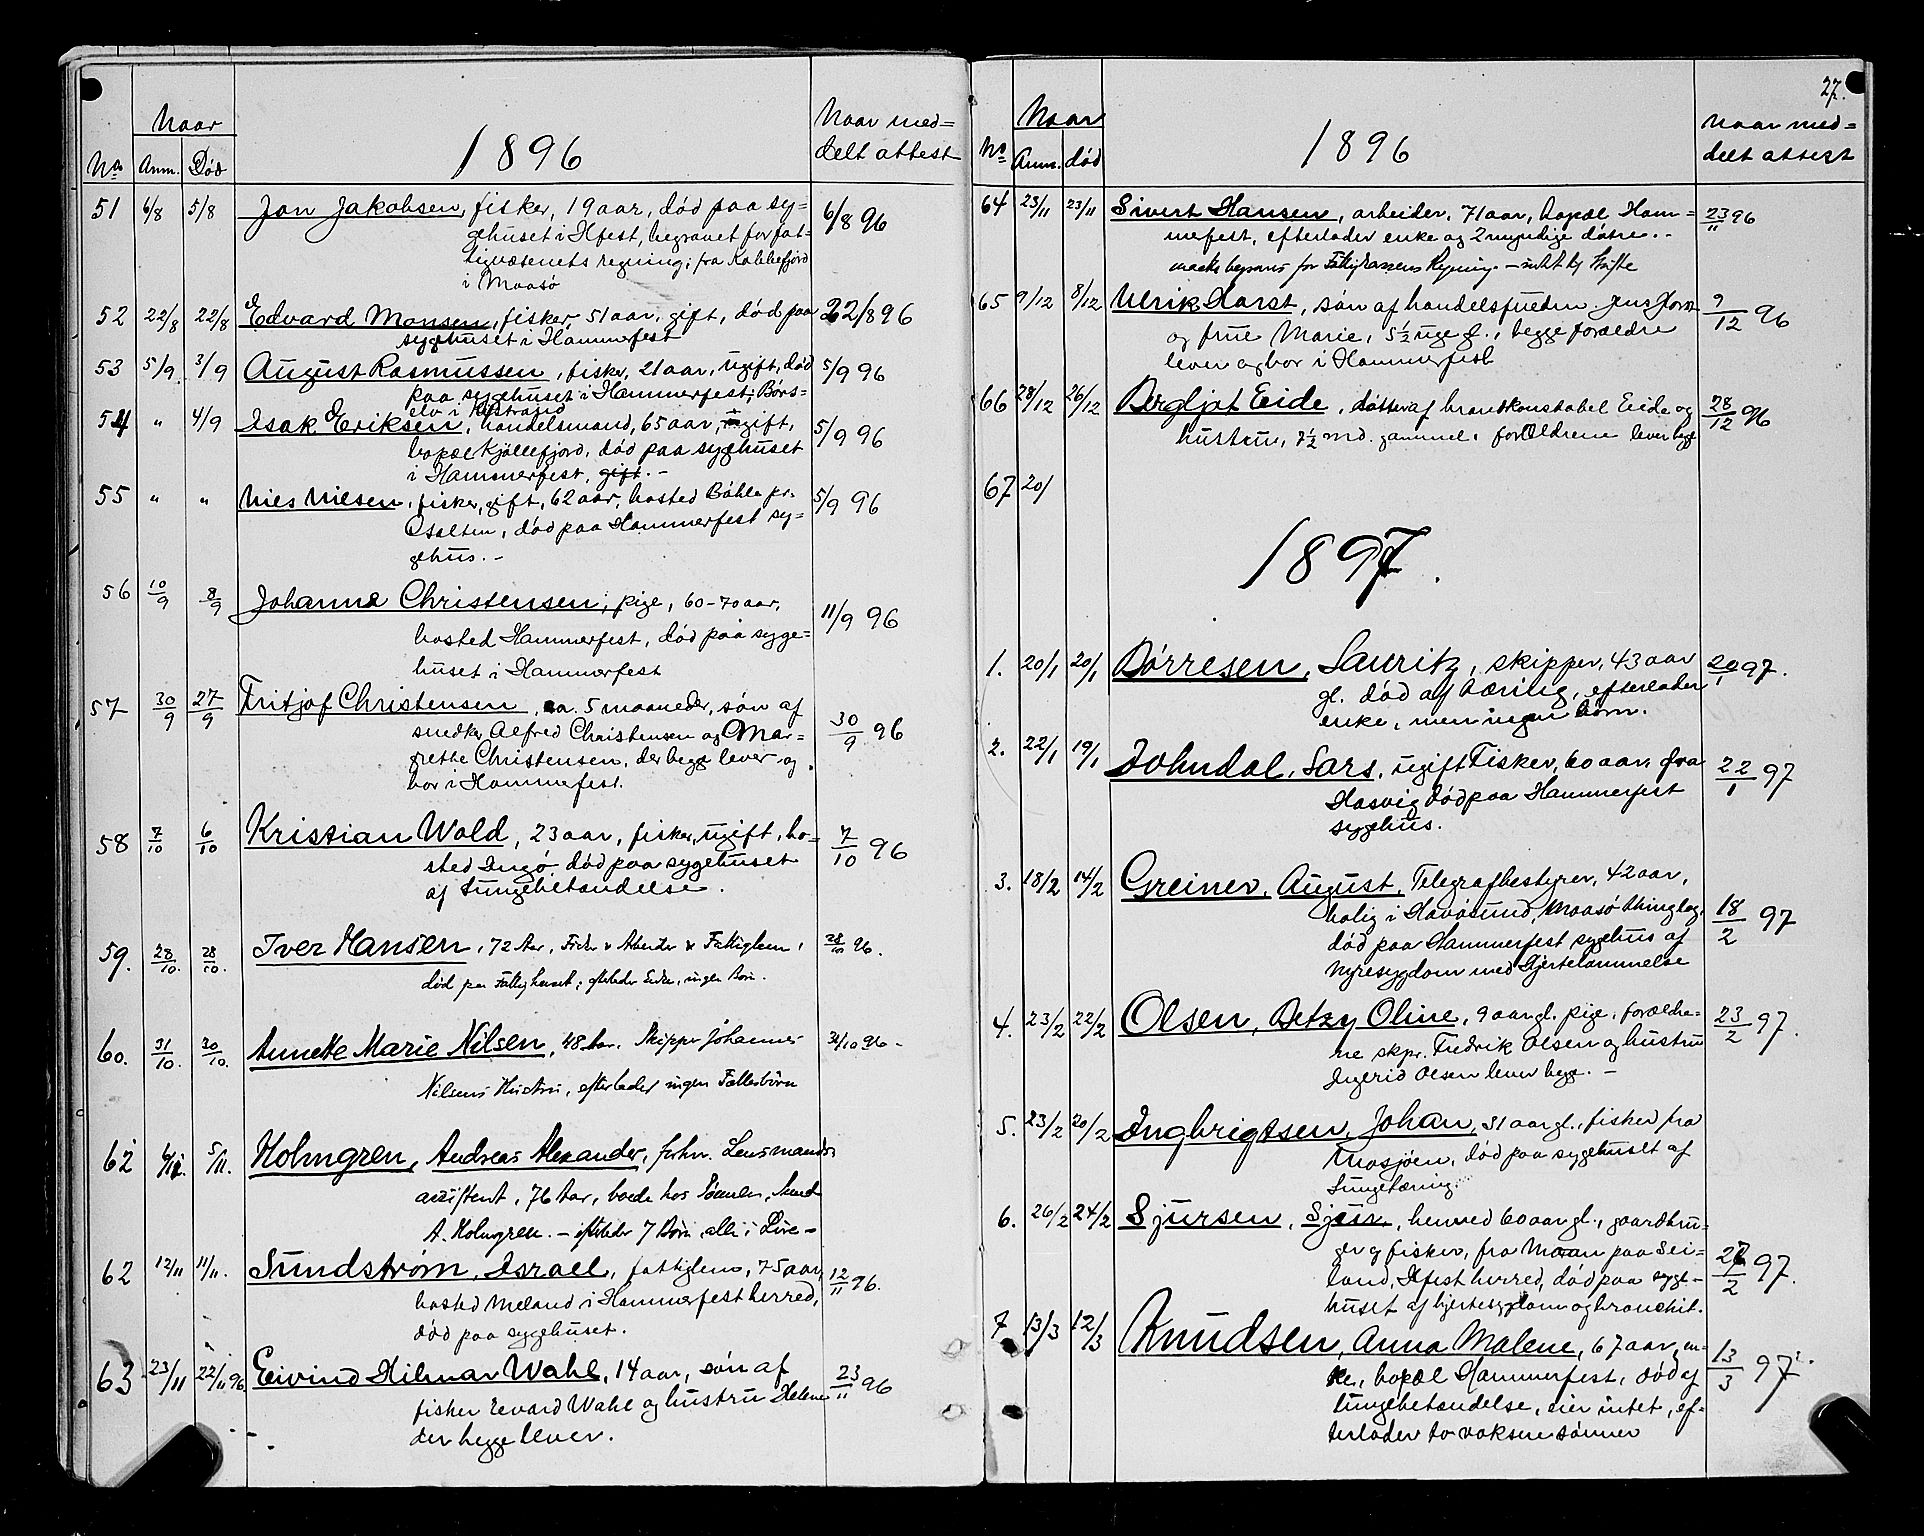 Naar
1896
Naar med=
delt attest
No
Anm.
Død
51 6/8 5/8 Jon Jakobsen, fisker, 19 aar, død paa sy= 6/8 96
gehuset i Hfest, begravet for fat=
tigvæsenets regning; fra Kobbefjord
i Maasø
52 22/8 22/8 Edvard Monsen, fisker, 51 aar, gift, død paa 22/8 96
sygehuset i Hammerfest
53 5/9 3/9 August Rasmussen, fisker, 21 aar, ugift, død 5/9 96
paa sygehuset i Hammerfest; Børs=
elv i Kistrand
54 " 4/9 Isak Eriksen, handelsmand, 65 aar, gift, 5/9 96
bopæl Kjøllefjord, død paa sygehuset
i Hammerfest, gift. -
55 " " Nies Nilsen, fisker, gift, 62 aar, bosted Bøhle pr. 5/9 96
død paa Hammerfest sy=
gehus. -
56 10/9 8/9 Johanna Christensen, pige, 60-70 aar, 11/9 96
bosted Hammerfest, død paa syge=
huset i Hammerfest
57 30/9 27/9 Fritjof Christensen, ca. 5 maaneder, søn af 30/9 96
snedker Alfred Christensen og Mar=
grethe Christensen, der begge lever og
bor i Hammerfest.
58 7/10 6/10 Kristian Wold, 23 aar, fisker, ugift, bo= 7/10 96
sted Ingø, død paa sygehuset
af lungebetændelse.
59. 28/10. 28/10. Iver Hansen, 72 Aar, Fisker & Arbeider & Fattiglem, 28/10 96.
død paa Fattighuset; efterlader Enke, ingen Børn.
60. 31/10. 30/10. Annette Marie Nilsen, 48 Aar. Skipper Johannes 31/10 96 -
Nilsens Hustru, efterlader ingen Fællesbørn
62 6/11. 5/11. Holmgren, Andreas Alexander, forhv. Lensmands
assistent, 76 Aar, boede hos Sønnen,
A. Holmgren. - efterlader 7 Børn, alle i Live -
62 12/11 11/11. Sundstrøm, Israel, fattiglem, 75 aar, 12/11 96.
bosted Meland i Hammerfest herred,
død paa sygehuset.
63 23/11 22/11 96. Eivind Hilmar Wahl, 14 aar, søn af 23/11 96
fisker Edvard Wahl og hustru Helene
der begge lever.
27.
Naar
1896
Naar med=
delt attest
No
Anm.
død
64 23/11 23/11 Sivert Hansen, arbeider, 71 aar, bopæl Ham= 23/11 96
merfest, efterlader enke og 2 myndige døtre. -
begraves for Fattigkassens Regning -
65 9/12 8/12 Ulrik Horst, søn af handelsfuldm. Jens Horst 9/12 96
og frue Marie, 5½ uge gl., begge forældre
lever og bor i Hammerfest
66 28/12 26/12 Bergljot Eide, datter af brandkonstabel Eide og 28/12 96
hustru, 7½ md. gammel, forældrene lever begge
67 20/
1897.
1. 20/1 20/1 Børresen, Lauritz, skipper, 43 aar 20/1 97.
gl. død af tæring, efterlader
enke, men ingen børn.
2. 22/1 19/1 Dohndal, Lars, ugift Fisker, 60 aar, fra 22/1 97
Hasvig død paa Hammerfest
sygehus.
3. 18/2 14/2 Greiner, August, Telegrafbestyrer, 42 aar, 18/2 97
bolig i Havøsund, Maasø thinglag,
død paa Hammerfest sygehus af
Nyresygdom med Hjertelammelse
4. 23/2 22/2 Olsen, Betzy Oline, 9 aar gl. pige, forældre= 23/2 97.
ne skpr. Fredrik Olsen og hustru
Ingerid Olsen lever begge. -
5. 23/2 20/2 Ingbrigtsen, Johan, 31 aar gl., fisker fra
Mosjøen, død paa sygehuset af
Lungetæring.
6. 26/2 24/2 Sjursen, Sjur, henved 60 aar gl., gaardbru= 27/2 97.
ger og fisker, fra Maan paa Sei=
land, Hfest herred, død paa syge=
huset af hjertesygdom og bronchit.
7 13/3 12/3 Knudsen, Anna Malene, 67 aar, en= 13/3 97.
ke, bopæl Hammerfest, død af
lungebetændelse, eier intet, ef=
terlader to voksne sønner